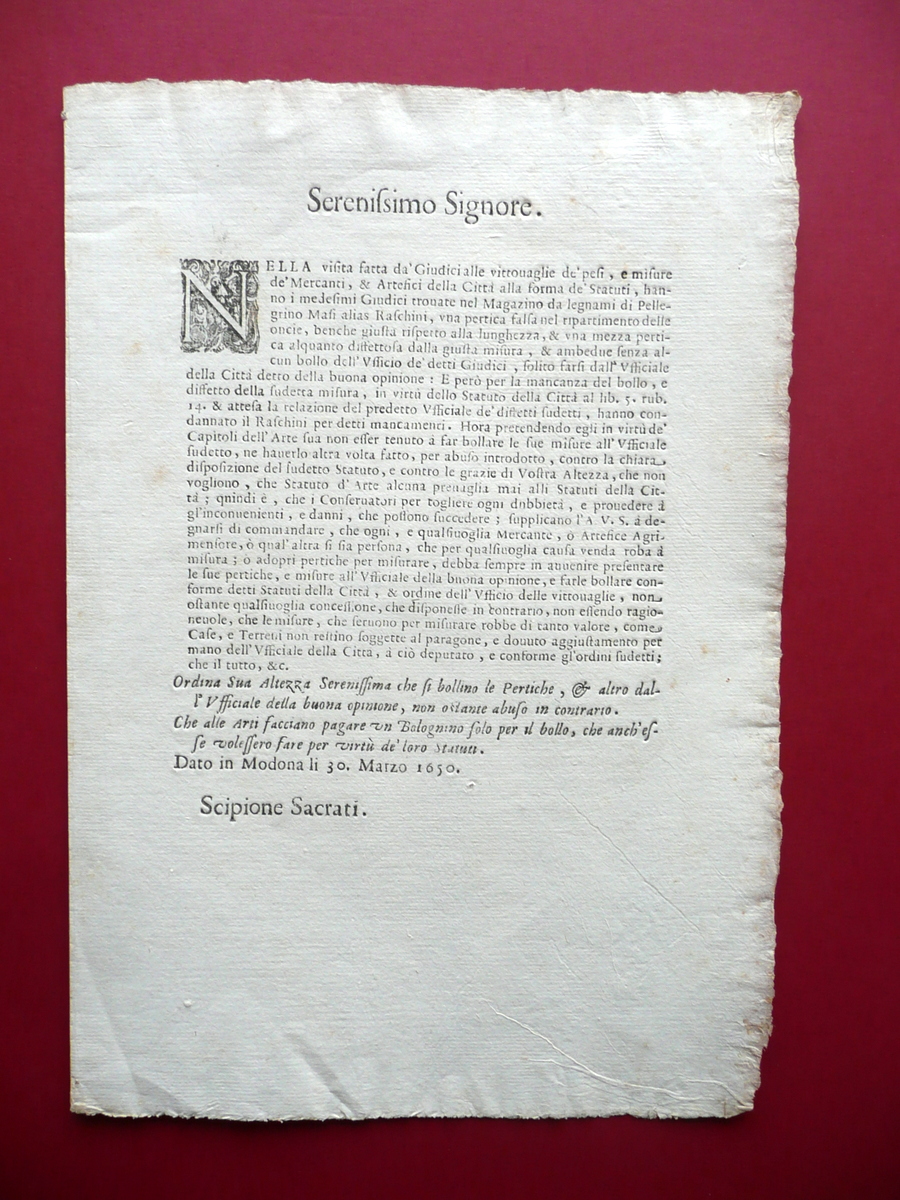 Sereniſsimo Signore.
NELLA viſita fatta da' Giudici alle vittouaglie de' peſi, e miſure
de' Mercanti, & Artefici della Città alla forma de' Statuti, han-
no i medeſimi Giudici trouate nel Magazino da legnami di Pelle-
grino Maſi alias Raſchini, vna pertica falſa nel ripartimento delle
oncie, benche giuſta riſpetto alla lunghezza, & vna mezza perti-
ca alquanto diffettoſa dalla giuſta miſura, & ambedue ſenza al-
cun bollo dell' Vfficio de' detti Giudici, ſolito farſi dall' Vfficiale
della Città detto della buona opinione: E però per la mancanza del bollo, e
diffetto della ſudetta miſura, in virtù dello Statuto della Città al lib. 5. rub.
14. & atteſa la relazione del predetto Vfficiale de' diffetti ſudetti, hanno con-
dannato il Raſchini per detti mancamenti. Hora pretendendo egli in virtù de'
Capitoli dell' Arte ſua non eſſer tenuto à far bollare le ſue miſure all' Vfficiale
ſudetto, ne hauerlo altra volta fatto, per abuſo introdotto, contro la chiara
diſpoſizione del ſudetto Statuto, e contro le grazie di Voſtra Altezza, che non
vogliono, che Statuto d' Arte alcuna preuaglia mai alli Statuti della Cit-
tà; quindi è, che i Conſeruatori per togliere ogni dubbietà, e prouedere à
gl'inconuenienti, e danni, che poſſono ſuccedere; ſupplicano l'A V. S. à de-
gnarſi di commandare, che ogni, e qualſiuoglia Mercante, ò Artefice Agri-
menſore, ò qual' altra ſi ſia perſona, che per qualſiuoglia cauſa venda roba à
miſura; ò adopri pertiche per miſurare, debba ſempre in auuenire preſentare
le ſue pertiche, e miſure all' Vfficiale della buona opinione, e farle bollare con-
forme detti Statuti della Città, & ordine dell' Vfficio delle vittouaglie, non
oſtante qualſiuoglia conceſſione, che diſponeſſe in contrario, non eſſendo ragio-
neuole, che le miſure, che ſeruono per miſurare robbe di tanto valore, come
Caſe, e Terreni non reſtino ſoggette al paragone, e douuto aggiuſtamento per
mano dell' Vfficiale della Città, à ciò deputato, e conforme gl'ordini ſudetti;
che il tutto, &c.
Ordina Sua Altezza Sereniſſima che ſi bollino le Pertiche, & altro dal-
l' Vfficiale della buona opinione, non oſtante abuſo in contrario.
Che alle Arti facciano pagare vn Bolognino ſolo per il bollo, che anch'eſ-
ſe voleſſero fare per virtù de' loro Statuti.
Dato in Modona li 30. Marzo 1650.
Scipione Sacrati.